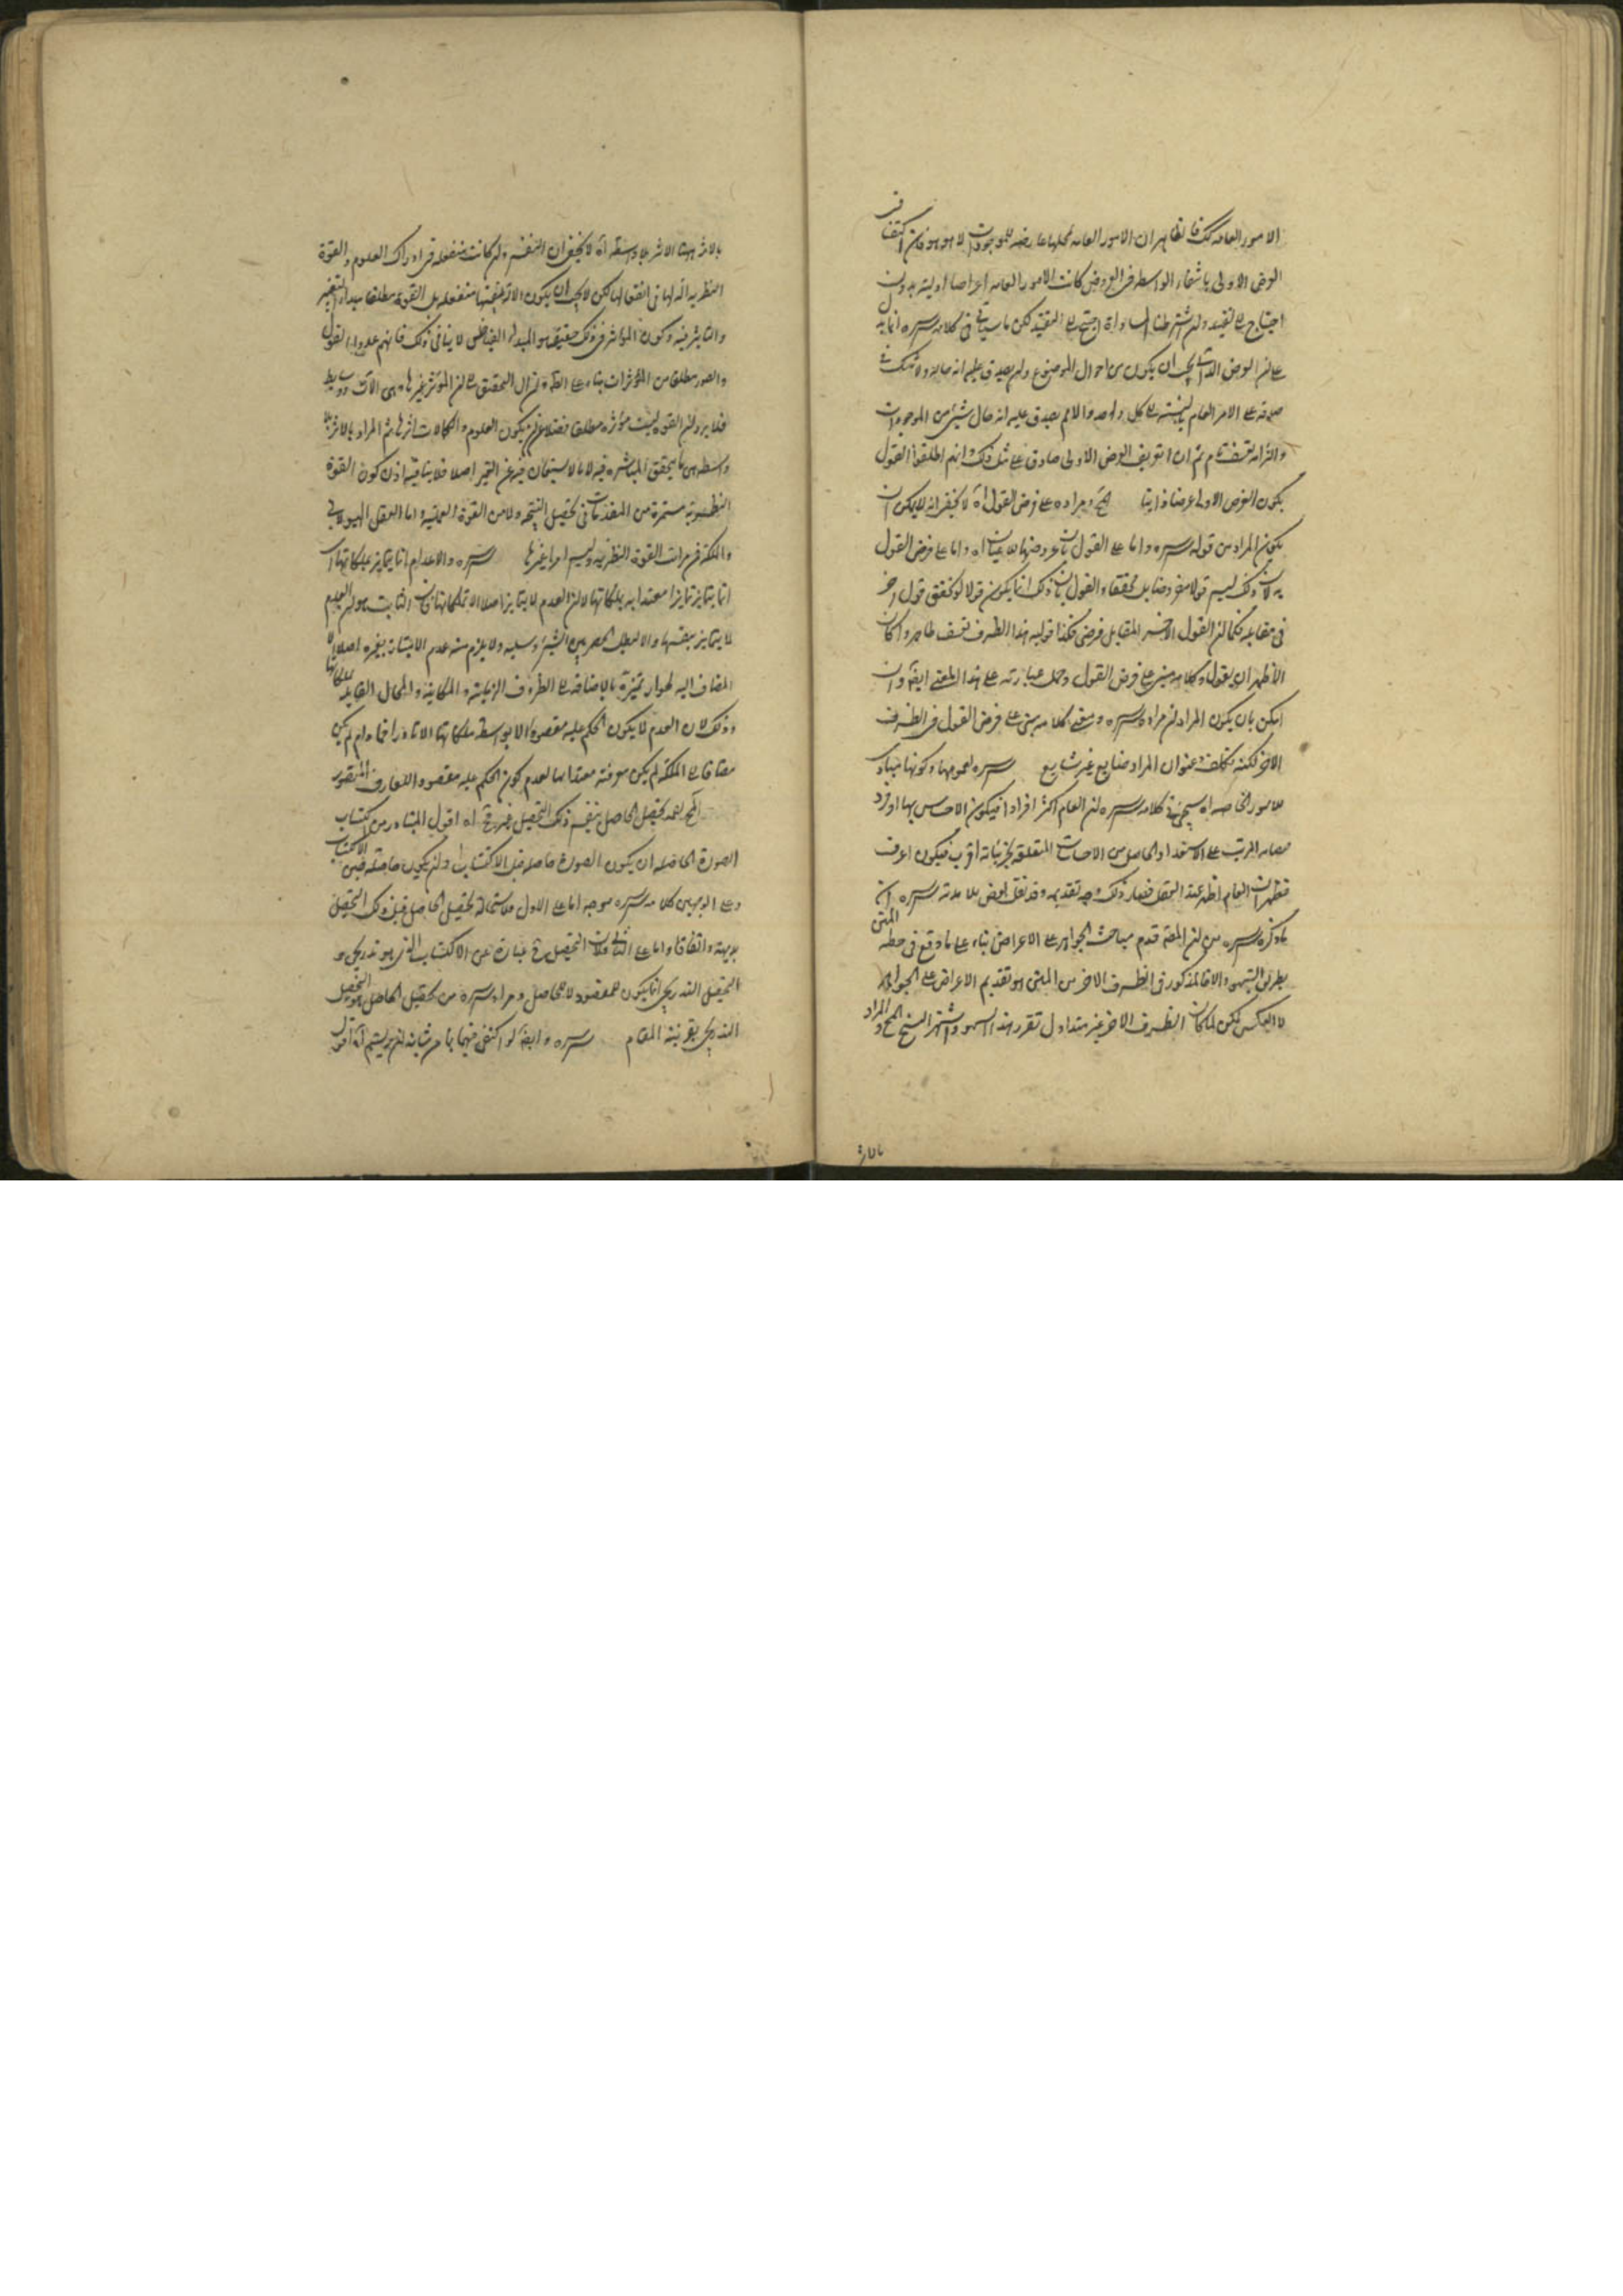 الامور العامه كك فالظاهر ان الامور العامه محلها عارضه للموجودات لا هو هو فان اكتفا فى
العرض الاولى بانتفاء الواسطه فى العروض كانت الامور العامه اعراضا اوليته بدون
احتياج الى تقييد وان اشترطنا المساواة احتج الى التقييد لكن ما سياتى فى كلامه سره
على ان العرض الذاتى يجب ان يكون من احوال الموضوع ولم يصدق عليه انه حاله ولا شك فى
صدقه على الامر العام بالنسبته الى كل واحد والامر يصدق عليه انه حال شىء من الموجودات
والتزامه تعسف تام ثم ان تعريف العرض الاولى صادق على مثل ذلك وانهم اطلقوا القول
بكون العرض الاولى عرضا ذاتيا مراده على فرض القول اه لا يخفى انه لا يمكن ان
يكون المراد من قوله سره واما على القول بان عروضها للاعيان اه واما على فرض القول
به لان ذلك ليس قولا مفروضا بل محققا والقول بان ذلك انما يكون قولا لو تحقق قول اخر
فى مقابله فكما ان القول الاخر المقابل فرضى فكذا قوليه هذا الطرف تعسف ظاهر وان كان
الاظهر ان يقول وكلامه مبنى على فرض القول وحمل عبارته على هذا المعنى ايضا وان
امكن بان يكون المراد ان مراده سره ومعنى كلامه مبنى على فرض القول فى الطرف
الاخر لكنه تكلف وعنوان المراد ضايع غير شايع سره لعمومها وكونها مبادى
للامور الخاصه اه سيجىء فى كلامه سره ان العام اكثر افرادا فيكون الاحساس بها اوفر
الاستعداد الحاصل من الاحساسات المتعلقه بجزئياته اقرب فيكون اعرف
فظهر ان العام اظهر عند العقل فصار ذلك وجه تقديمه وقد نقل بعض تلامذته سره ان
ما ذكره سره من ان المصنف قدم مباحث الجواهر على الاعراض بناء على ما وقع فى خطه
بطريق السهو والا فالمذكور فى الطرف الاخر من المتن هو تقديم الاعراض على الجواهر
لا العكس لكن لما كان الطرف الاخر غير متداول تقرر هذا السهو واشتهر النسخ والمراد
بالاثر
بالاثر ههنا الاثر بلا واسطه اه لا يخفى ان النفس وان كانت منفعله فى ادراك العلوم والقوة
النظريه اله لها فى انفعالها لكن لا يجب ان يكون الاله بنفسها منفعله بل القوة مطلقا مبداء التغير
والتاثير فيه وكون المؤثر فى ذلك حقيقه هو المبداء الفياض لا ينافى ذلك فانهم عدوا القول
والصور مطلقا من المؤثرات بناء على الظاهر وان ال التحقيق الى ان المؤثر غيرها وهى الات ووسايط
فلا يرد ان القوة ليست مؤثره مطلقا فضلا عن ان يكون العلوم والكمالات اثرها ثم المراد بالاثر بلا
واسطه هى ما يتحقق المباشره فيه لا ما لا يستعان فيه عن الغير اصلا فلا ينافيه اذن كون القوة
النظريه مستمدة من المقدمات فى تحصيل النتيجه ولا من القوة العمليه واما العقل الهيولانى
والملكه فمن مراتب القوة النظريه وليس امرا غيرها سره والاعدام انما يتمايز بملكاتها اه
انما يتمايز تمايزا معتدا به بملكاتها لان العدم لا يتمايز اصلا الا بملكاتها فان الثابت هو ان العدم
لا يتمايز بنفسها والا لبطل الحصر بين الشىء وسلبه ولا يلزم منه عدم الامتياز بغيره اصلا
المضاف اليه لجواز تميزه بالاضافه الى الظروف الزمانيه والمكانيه والمحال القابله لملكاتها
وذلك لان العدم لا يكون الحكم عليه مقصودا الا بواسطه ملكاتها الا نادرا فما دام لم يكن
مضافا الى الملكه لم يكن معرفته معتدا بها لعدم كون الحكم عليه مقصودا للعارف المتصور
تحصيل الحاصل بنفس ذلك التحصيل غير محال اه اقول المتبادر من اكتساب
الصورة الحاصله ان يكون الصورة حاصله قبل الاكتساب وان يكون حاصله بنفس الاكتساب
وعلى الوجهين كلامه سره موجه اما على الاول فلاستحالة تحصيل الحاصل قبل ذلك التحصيل
بديهة واتفاقا واما على الثانى فلان التحصيل عبارة عن الاكتساب الذى هو تدريجى و
التحصيل التدريجى انما يكون للمفقود لا للحاصل ومراده سره من تحصيل الحاصل هو التحصيل
التدريجى بقرينة المقام سره وايضا لو اكتفى فيهما بما من شانه ان يرتسم اه اقول